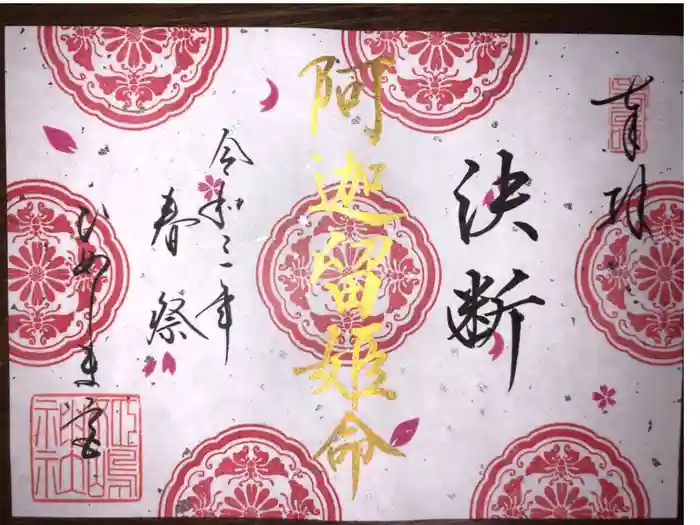 奉拝
決断
阿迦留姫命
令和三年
春祭
ひめしま宮